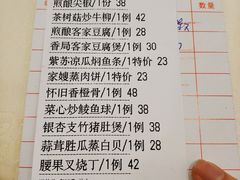 煎酿尖椒/1份 38
茶树菇炒牛柳/1例 42
煎酿客家豆腐/1例 28
香局客家豆腐煲/1例 30
紫苏凉瓜焖鱼条/1特价 23
家嫂蒸肉饼/1特价 23
怀旧香橙骨/1例 48
菜心炒鲮鱼球/1例 38
银杏支竹猪肚煲/1例 50
蒜茸胜瓜蒸白贝/1例 28
腰果叉烧丁/1例 42
数量